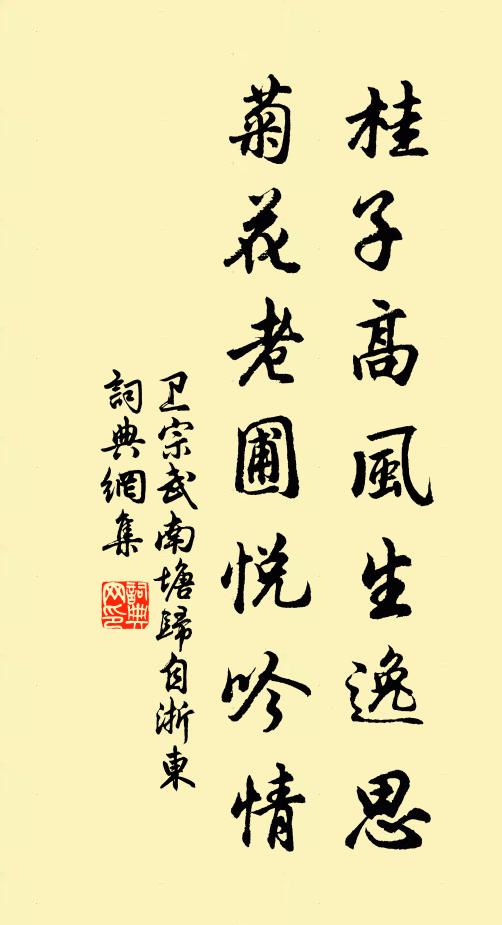 桂子高風生逸思
菊花老圃悅吟情
卫宗武南塘歸自浙東
詞典網集
詞典
网印